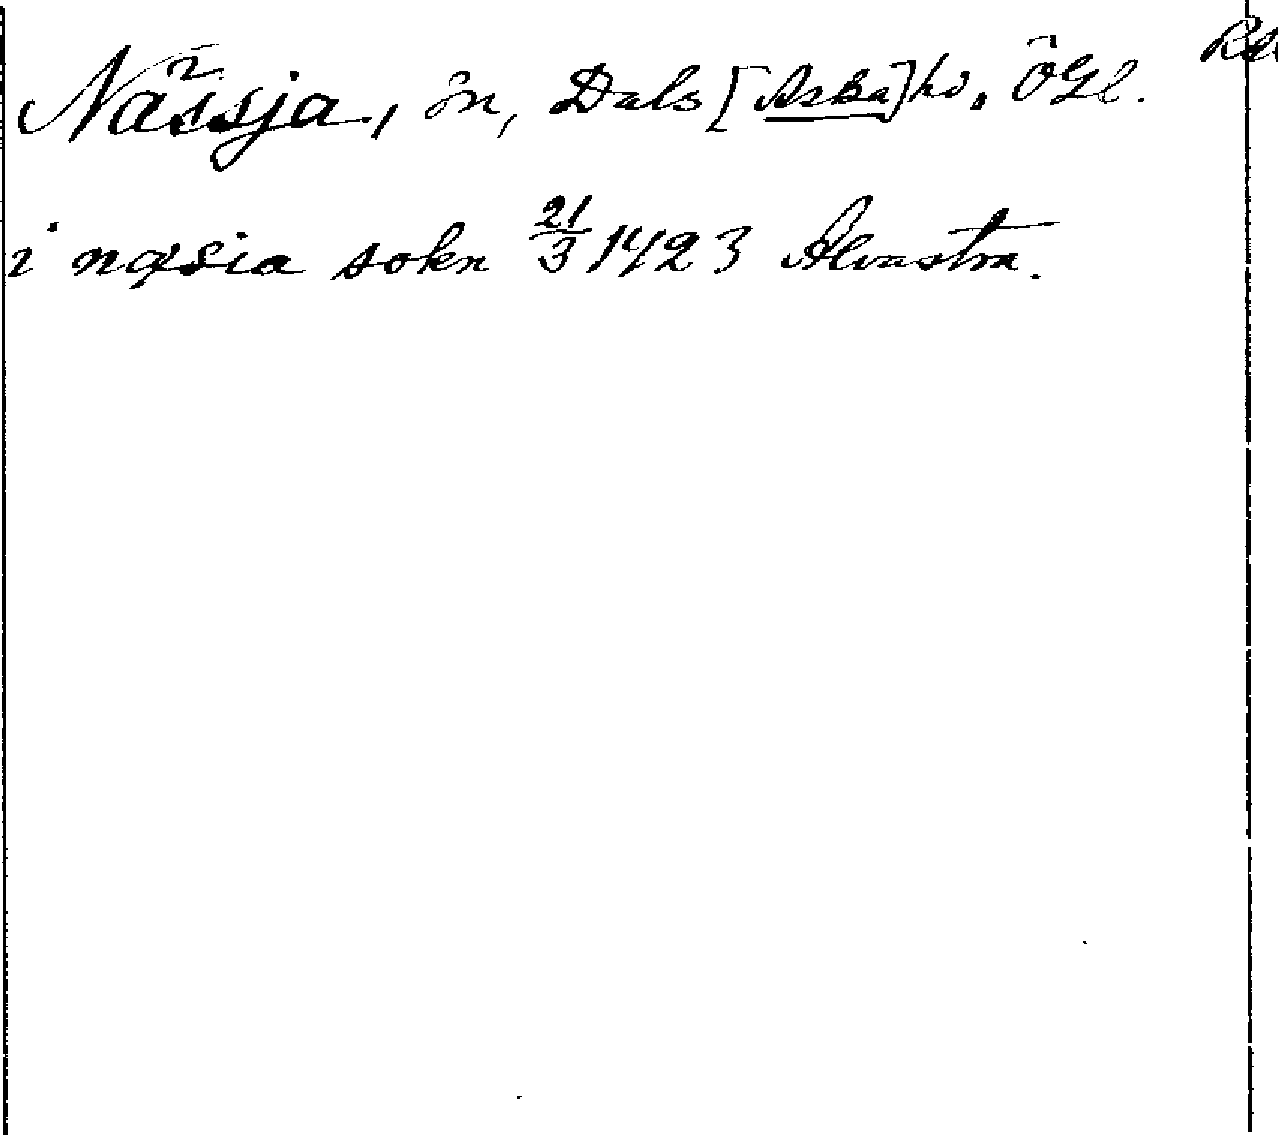 Nässja, sn, Dals [Aska] hd, ÖGl.
i næsia sokn 21/3 1423 Alvastra.